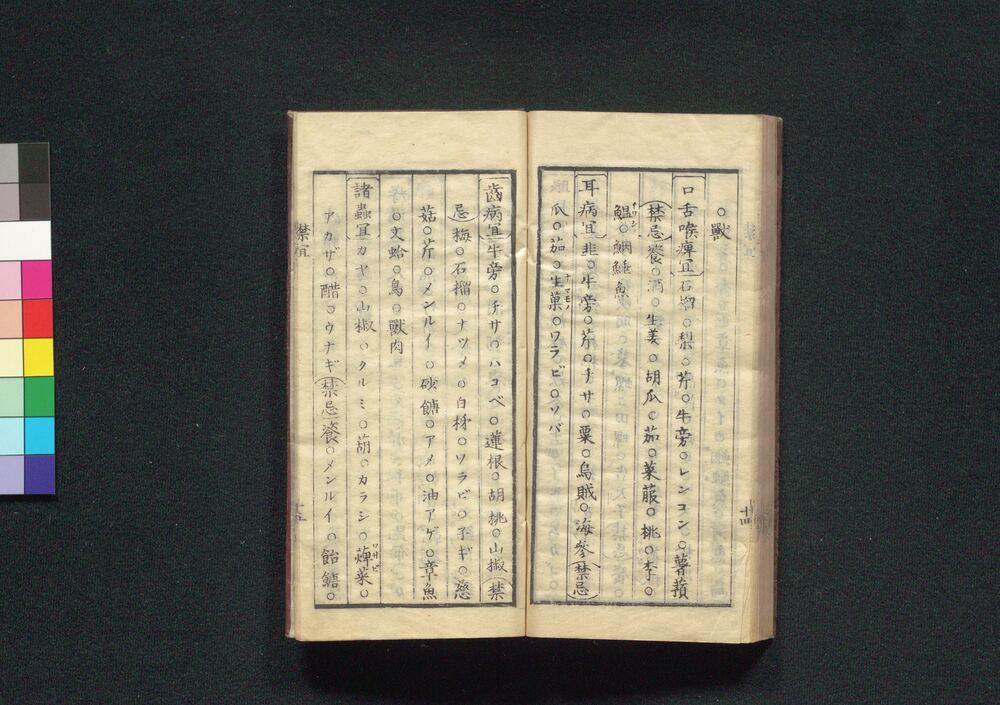 ○獸
口舌喉痺宜石榴○梨○芹○牛旁○レンコン○薯蕷
禁忌餈○酒○生姜○胡瓜○茄○菜菔○桃○李○
鰛○鯛鯡魚
耳病宜韭○牛旁○芹○チサ○粟○烏賊○海參禁忌
瓜○茄○生菓○ワラビ○ソバ
ナマモノ
十四
齒病宜牛旁○チサ○ハコベ○蓮根○胡桃○山椒禁
忌梅○石榴○ナツメ○白柹○ワラビ○子ギ○慈
菇○芹○メンルイ○砂餹○アメ○油アゲ○章魚
○文蛤○鳥○獸肉
諸蟲宜カヤ○山椒○クルミ○葫○カラシ○菜○
ワサビ
アカザ○醋○ウナギ禁忌餈○メンルイ○飴餹○
禁宜
十五